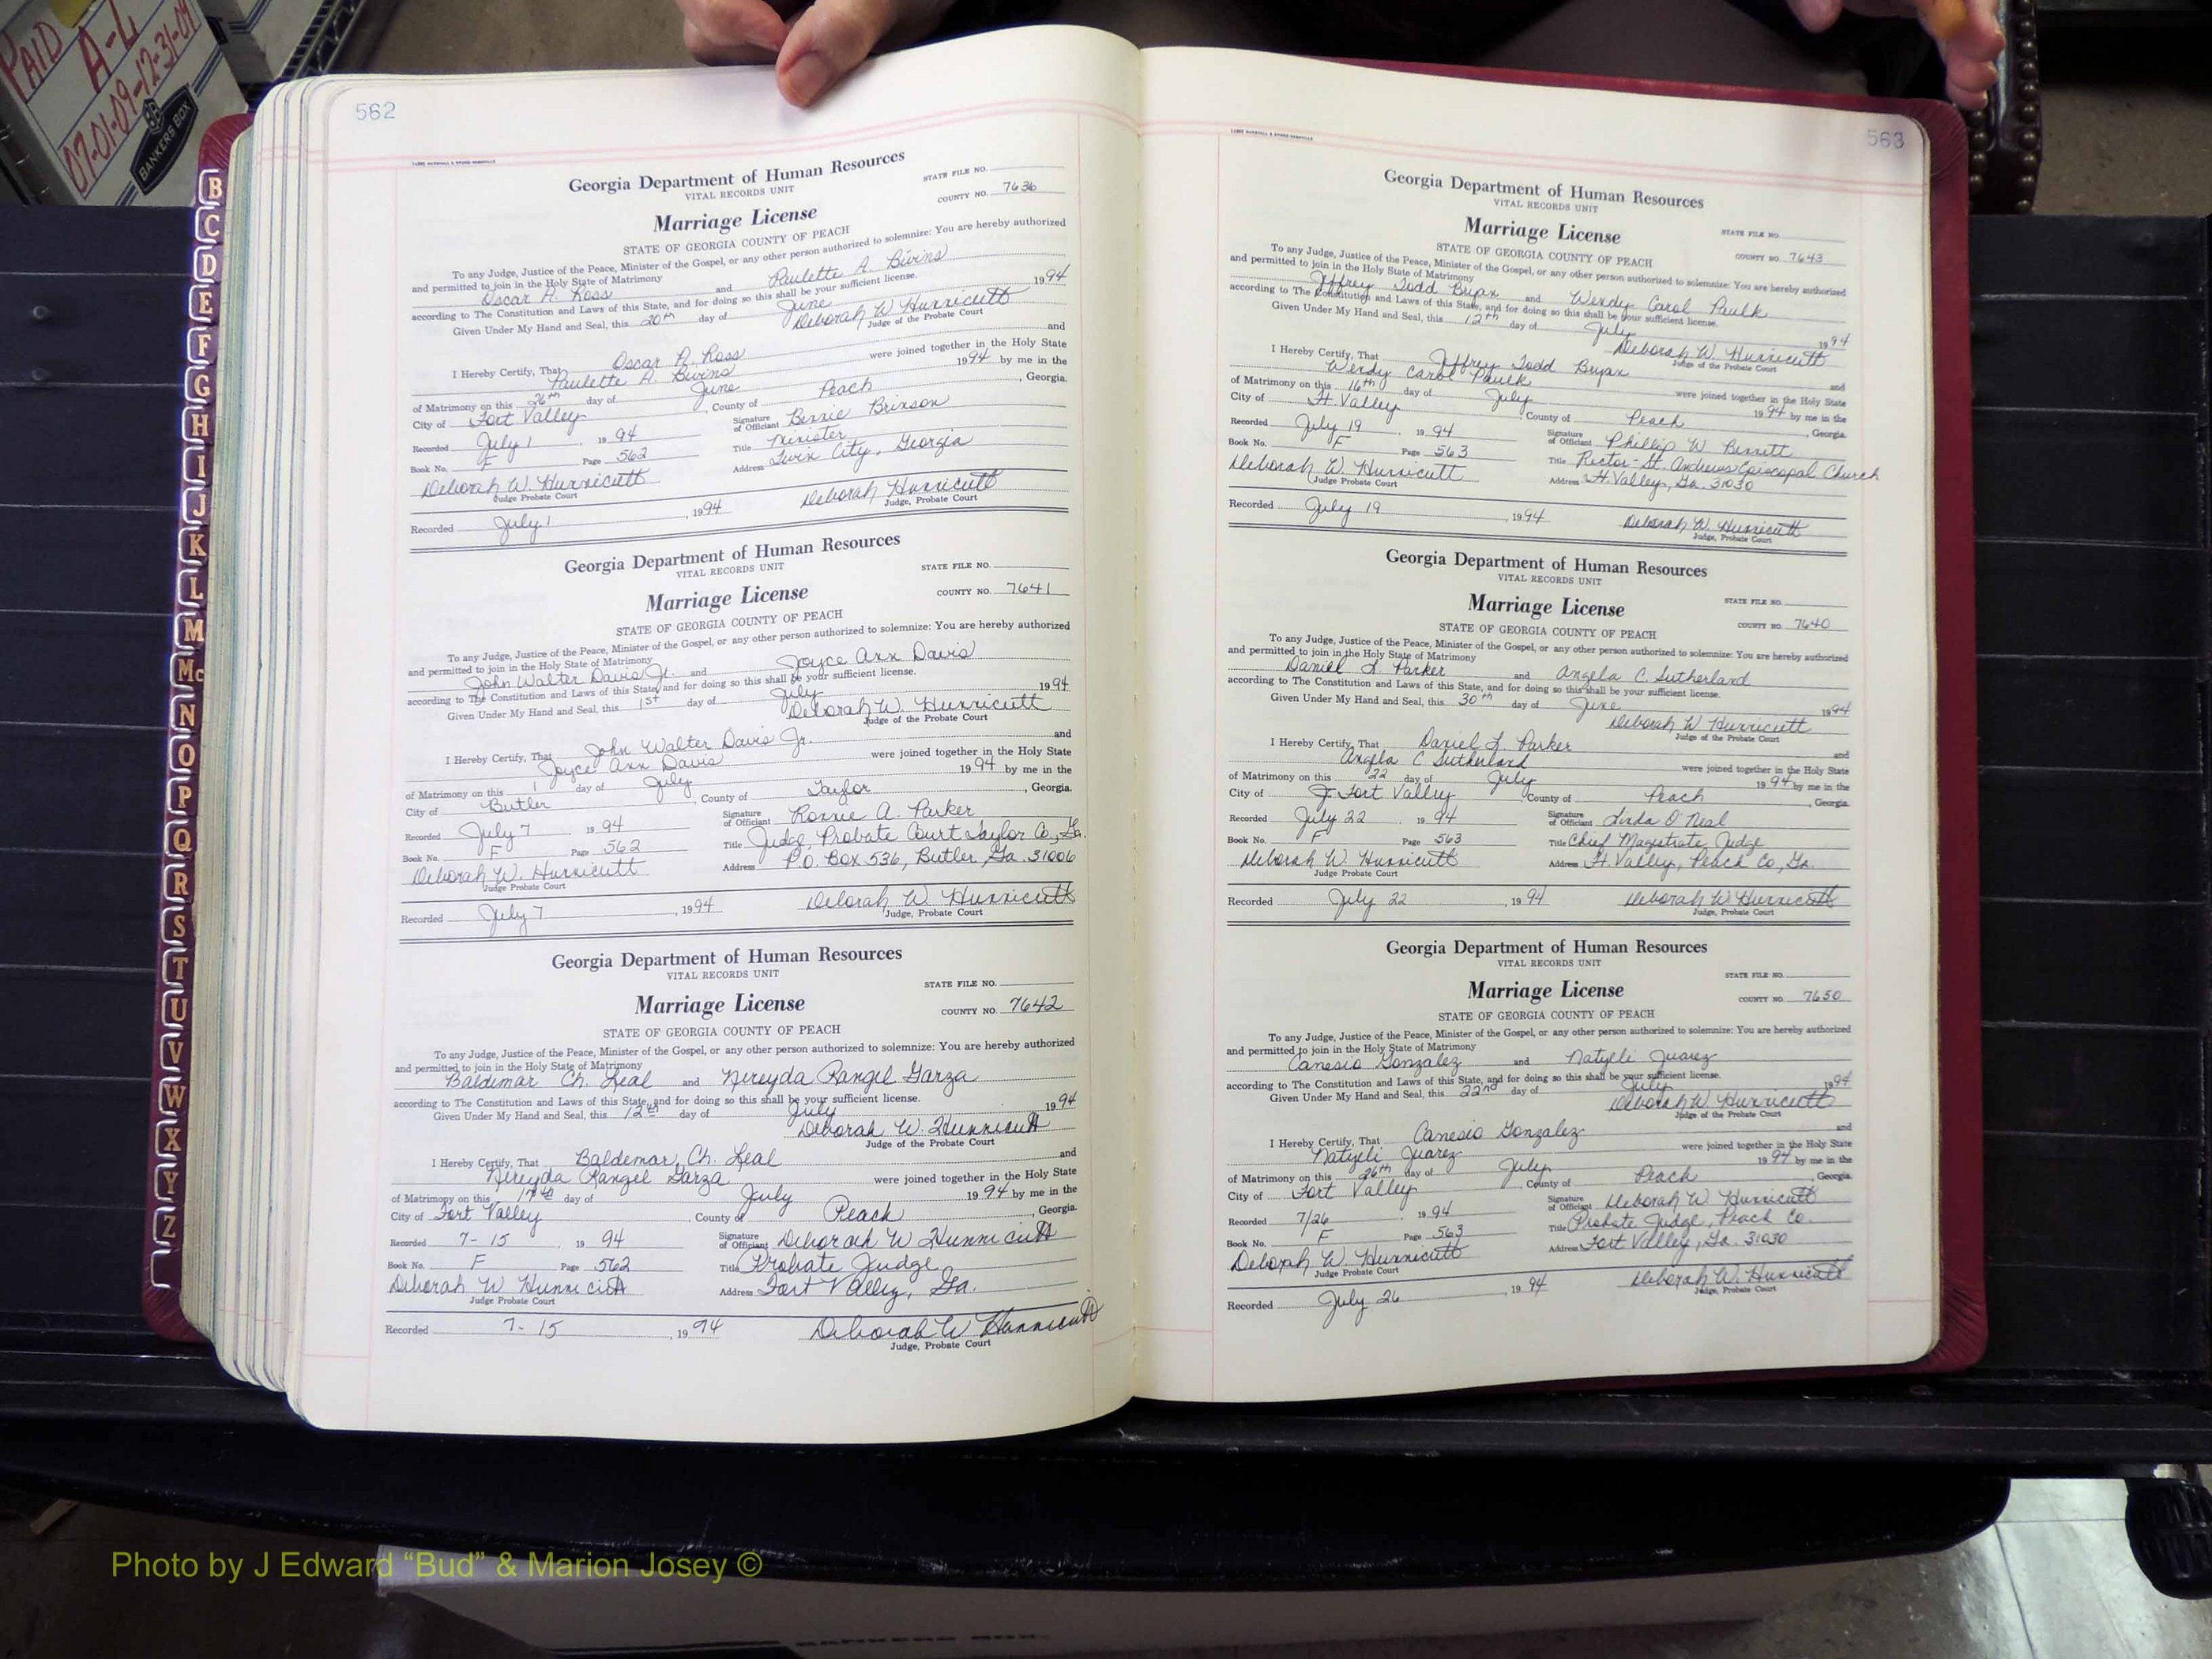 PAID
A-L
07-01-09-12-31-09
BANKERS BOX
B
C
D
E
F
G
H
I
J
K
L
M
Mc
N
O
P
Q
R
S
T
U
V
W
X
Y
Z
562
Georgia Department of Human Resources
VITAL RECORDS UNIT
STATE FILE NO.
COUNTY NO. 7636
Marriage License
STATE OF GEORGIA COUNTY OF PEACH
To any Judge, Justice of the Peace, Minister of the Gospel, or any other person authorized to solemnize: You are hereby authorized
and permitted to join in the Holy State of Matrimony
Oscar R. Ross and Paulette A. Bivins
according to The Constitution and Laws of this State, and for doing so this shall be your sufficient license.
Given Under My Hand and Seal, this 20th day of June 1994
Deborah W Hunnicutt
Judge of the Probate Court
I Hereby Certify, That Oscar R. Ross and
Paulette A. Bivins were joined together in the Holy State
of Matrimony on this 26th day of June 1994 by me in the
City of Fort Valley, County of Peach, Georgia.
Recorded July 1, 1994 Signature of Officiant Bennie Brinson
Book No. F Page 562 Title Minister
Deborah W. Hunnicutt Address Twin City, Georgia
Judge Probate Court
Recorded July 1, 1994 Deborah Hunnicutt
Judge, Probate Court
Georgia Department of Human Resources
VITAL RECORDS UNIT
STATE FILE NO.
COUNTY NO. 7641
Marriage License
STATE OF GEORGIA COUNTY OF PEACH
To any Judge, Justice of the Peace, Minister of the Gospel, or any other person authorized to solemnize: You are hereby authorized
and permitted to join in the Holy State of Matrimony
John Walter Davis Jr. and Joyce Ann Davis
according to The Constitution and Laws of this State, and for doing so this shall be your sufficient license.
Given Under My Hand and Seal, this 1st day of July 1994
Deborah W. Hunnicutt
Judge of the Probate Court
I Hereby Certify, That John Walter Davis Jr. and
Joyce Ann Davis were joined together in the Holy State
of Matrimony on this 1 day of July 1994 by me in the
City of Butler, County of Taylor, Georgia.
Recorded July 7, 1994 Signature of Officiant Ronnie A. Parker
Book No. F Page 562 Title Judge, Probate Court Taylor Co., Ga.
Deborah W. Hunnicutt Address P.O. Box 536, Butler, Ga. 31006
Judge Probate Court
Recorded July 7, 1994 Deborah W. Hunnicutt
Judge, Probate Court
Georgia Department of Human Resources
VITAL RECORDS UNIT
STATE FILE NO.
COUNTY NO. 7642
Marriage License
STATE OF GEORGIA COUNTY OF PEACH
To any Judge, Justice of the Peace, Minister of the Gospel, or any other person authorized to solemnize: You are hereby authorized
and permitted to join in the Holy State of Matrimony
Baldemar Ch. Leal and Nereyda Rangel Garza
according to The Constitution and Laws of this State, and for doing so this shall be your sufficient license.
Given Under My Hand and Seal, this 12th day of July 1994
Deborah W. Hunnicutt
Judge of the Probate Court
I Hereby Certify, That Baldemar Ch. Leal and
Nereyda Rangel Garza were joined together in the Holy State
of Matrimony on this day of July 1994 by me in the
City of Fort Valley County of Peach, Georgia.
Recorded 7-15 1994 Signature of Officiant Deborah W Hunnicutt
Book No. F Page 562 Title Probate Judge
Deborah W Hunnicutt Address Fort Valley, Ga.
Judge Probate Court
Recorded 7-15, 1994 Deborah W Hunnicutt
Judge, Probate Court
563
Georgia Department of Human Resources
VITAL RECORDS UNIT
Marriage License
STATE FILE NO.
STATE OF GEORGIA COUNTY OF PEACH
COUNTY NO. 7643
To any Judge, Justice of the Peace, Minister of the Gospel, or any other person authorized to solemnize: You are hereby authorized
and permitted to join in the Holy State of Matrimony
Jeffrey Todd Bryan and Wendy Carol Paulk
according to The Constitution and Laws of this State, and for doing so this shall be your sufficient license.
Given Under My Hand and Seal, this 12th day of July 1994
Deborah W. Hunnicutt
Judge of the Probate Court
I Hereby Certify, That Jeffrey Todd Bryan and
Wendy Carol Paulk were joined together in the Holy State
of Matrimony on this 16th day of July 1994 by me in the
City of Ft. Valley, County of Peach, Georgia.
Recorded July 19, 1994 Signature of Officiant Phillip W Bennett
Book No. F Page 563 Title Rector-St. Andrews Episcopal Church
Deborah W. Hunnicutt Address Ft. Valley, Ga. 31030
Judge Probate Court
Recorded July 19, 1994 Deborah W. Hunnicutt
Judge, Probate Court
Georgia Department of Human Resources
VITAL RECORDS UNIT
Marriage License
STATE FILE NO.
STATE OF GEORGIA COUNTY OF PEACH
COUNTY NO. 7640
To any Judge, Justice of the Peace, Minister of the Gospel, or any other person authorized to solemnize: You are hereby authorized
and permitted to join in the Holy State of Matrimony
Daniel L. Parker and Angela C. Sutherland
according to The Constitution and Laws of this State, and for doing so this shall be your sufficient license.
Given Under My Hand and Seal, this 30th day of June 1994
Deborah W Hunnicutt
Judge of the Probate Court
I Hereby Certify, That Daniel L. Parker and
Angela C Sutherland were joined together in the Holy State
of Matrimony on this 22 day of July 1994 by me in the
City of Fort Valley, County of Peach, Georgia.
Recorded July 22, 1994 Signature of Officiant Linda O'Neal
Book No. F Page 563 Title Chief Magistrate Judge
Deborah W. Hunnicutt Address Ft. Valley, Peach Co, Ga.
Judge Probate Court
Recorded July 22, 1994 Deborah W. Hunnicutt
Judge, Probate Court
Georgia Department of Human Resources
VITAL RECORDS UNIT
STATE FILE NO.
Marriage License
COUNTY NO. 7650
STATE OF GEORGIA COUNTY OF PEACH
To any Judge, Justice of the Peace, Minister of the Gospel, or any other person authorized to solemnize: You are hereby authorized
and permitted to join in the Holy State of Matrimony
Canesio Gonzalez and Natyeli Juarez
according to The Constitution and Laws of this State, and for doing so this shall be your sufficient license.
Given Under My Hand and Seal, this 22nd day of July 1994
Deborah W Hunnicutt
Judge of the Probate Court
I Hereby Certify, That Canesio Gonzalez and
Natyeli Juarez were joined together in the Holy State
of Matrimony on this 26th day of July 1994 by me in the
City of Fort Valley, County of Peach, Georgia
Recorded 7/26, 1994 Signature of Officiant Deborah W Hunnicutt
Book No. F Page 563 Title Probate Judge, Peach Co.
Deborah W. Hunnicutt Address Fort Valley, Ga. 31030
Judge Probate Court
Recorded July 26, 1994 Deborah W. Hunnicutt
Judge, Probate Court
Photo by J Edward “Bud” & Marion Josey ©